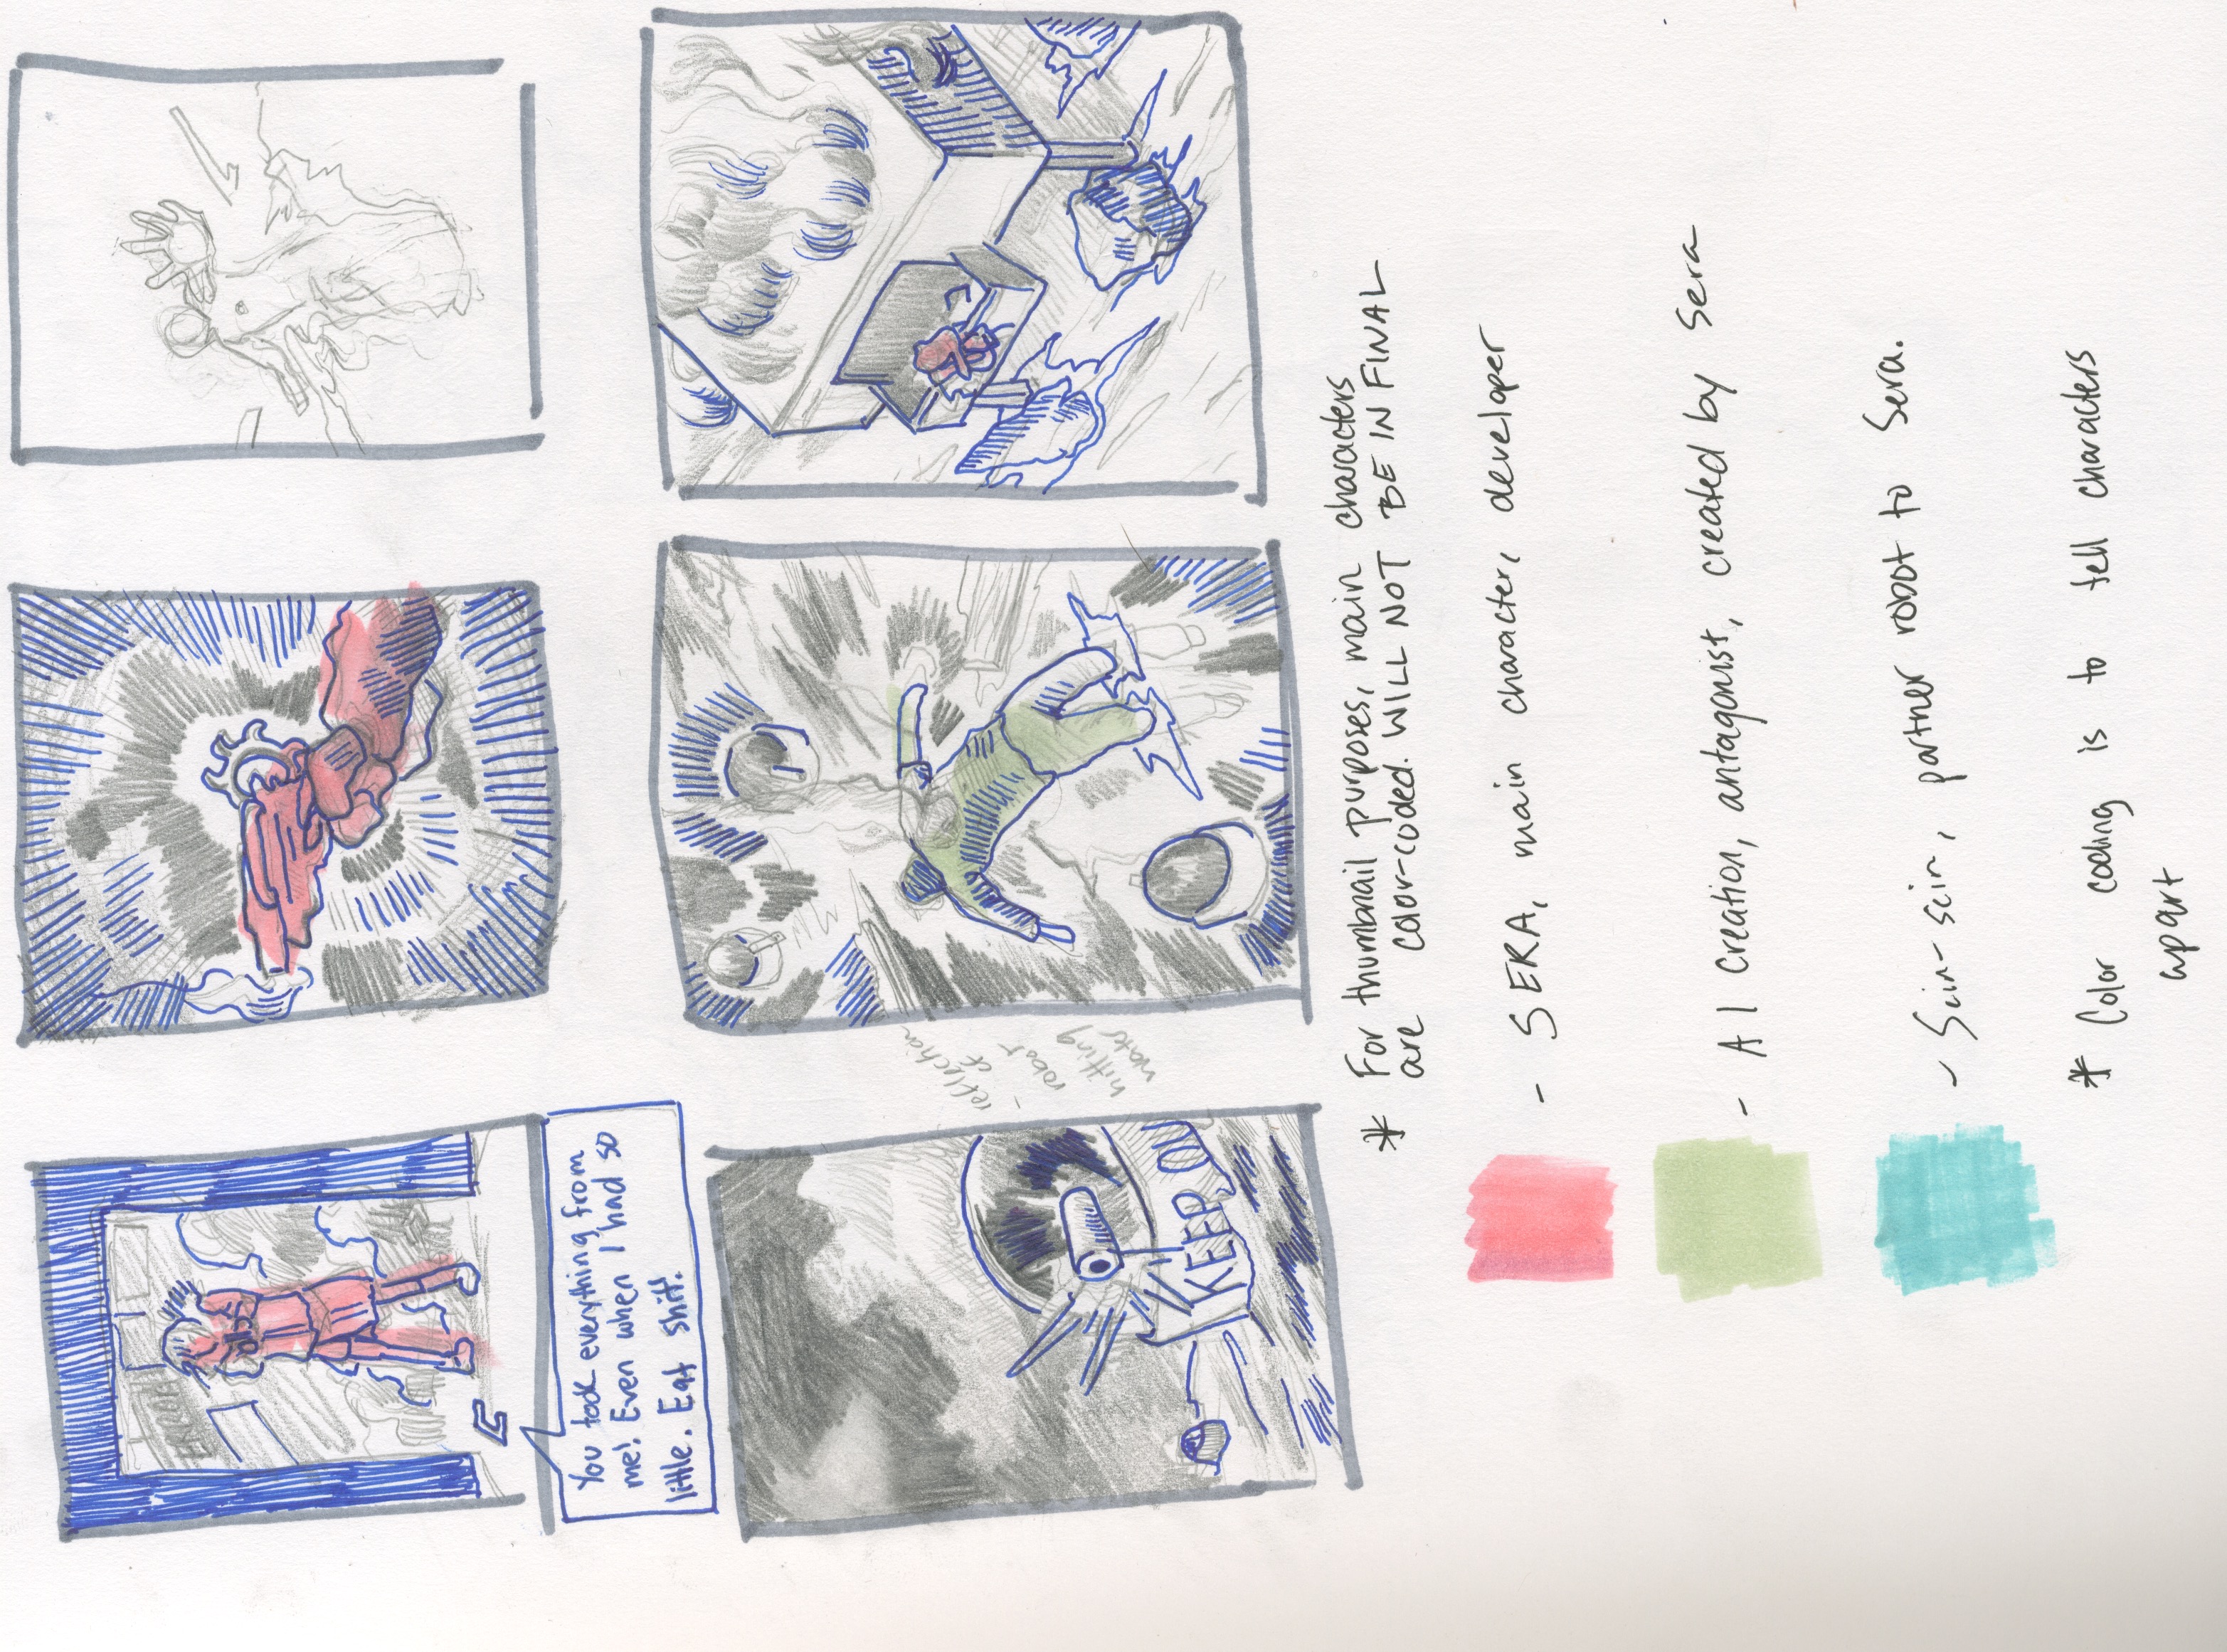 You took everything from
me! Even when I had so
little. Eat shit!
KEEP OU
- reflection
of
robot
hitting
water
* For thumbnail purposes, main characters
are color-coded. WILL NOT BE IN FINAL
- SERA, main character, developer
- AI creation, antagonist, created by Sera
- Scin-scin, partner robot to Sera.
* Color coding is to tell characters
apart